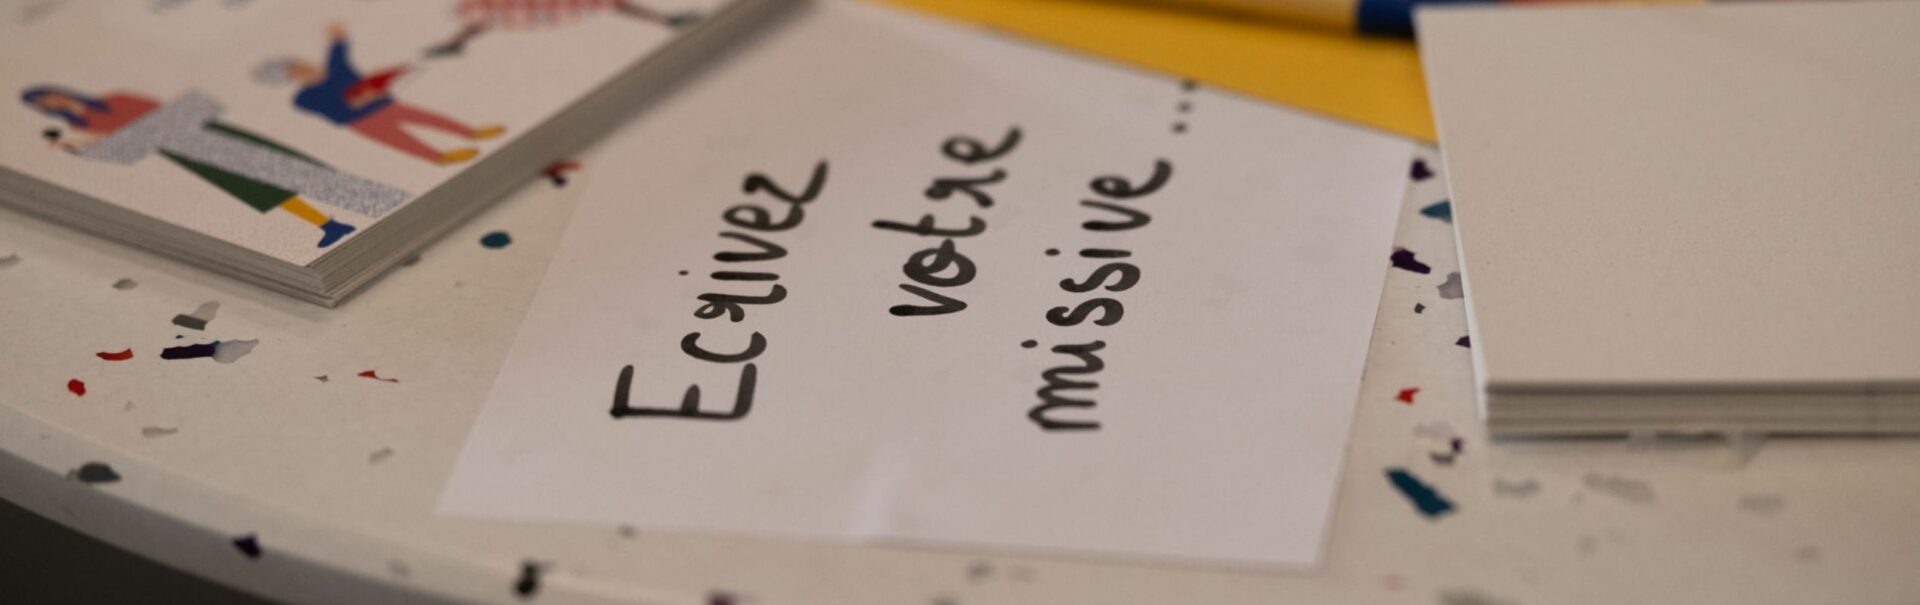 Ecrivez
votre
missive...